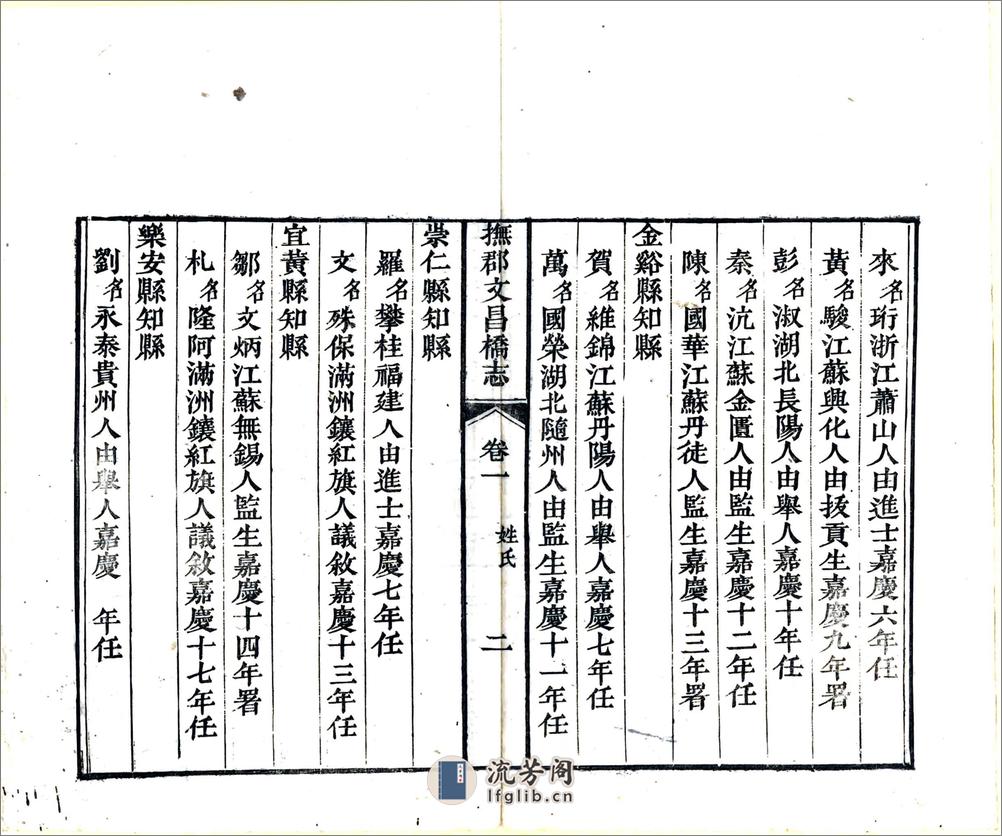 來名珩浙江蕭山人由進士嘉慶六年任
黃名駿江蘇興化人由拔貢生嘉慶九年署
彭名淑湖北長陽人由舉人嘉慶十年任
秦名沆江蘇金匱人由監生嘉慶十二年任
陳名國華江蘇丹徒人監生嘉慶十三年署
金谿縣知縣
賀名維錦江蘇丹陽人由舉人嘉慶七年任
萬名國榮湖北隨州人由監生嘉慶十一年任
撫郡文昌橋志
卷一
姓氏
二
崇仁縣知縣
羅名攀桂福建人由進士嘉慶七年任
文名殊保滿洲鑲紅旗人議敘嘉慶十三年任
宜黃縣知縣
鄒名文炳江蘇無錫人監生嘉慶十四年署
札名隆阿滿洲鑲紅旗人議敘嘉慶十七年任
樂安縣知縣
劉名永泰貴州人由舉人嘉慶 年任
流芳阁
lfglib.cn